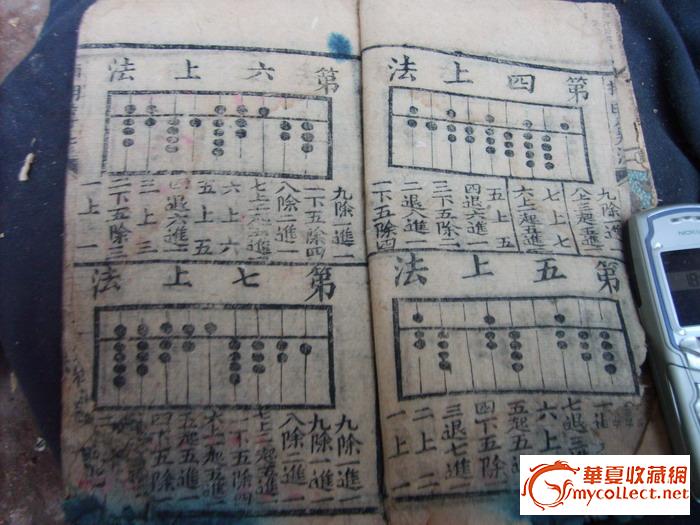 第四上法
九除進一
八上三起五進一
七上七
六上一起五進一
五上五
四退六進一
三下五除二
二退八進一
一下五除四
第五上法
七退三
六上六
五起五進一
四下五除一
三退七進一
二上二
一上一
第六上法
九除進一
一下五除四
八除二進一
七上二起五進一
六上六
五上五
四退六進一
三上三
二下五除三
一上一
第七上法
九除進一
九除進一
八除二進一
七上二起五進一
一下五除四
六上一起五進一
五起五進一
四下五除一
NOKIA
華夏收藏網
mycollect.net